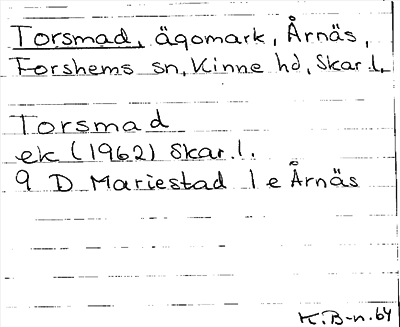 Torsmad, ägomark, Årnäs,
Forshems sn, Kinne hd, Skar.l.
Torsmad
ek (1962) Skar.l.
9 D Mariestad l e Årnäs
K.B-n.64